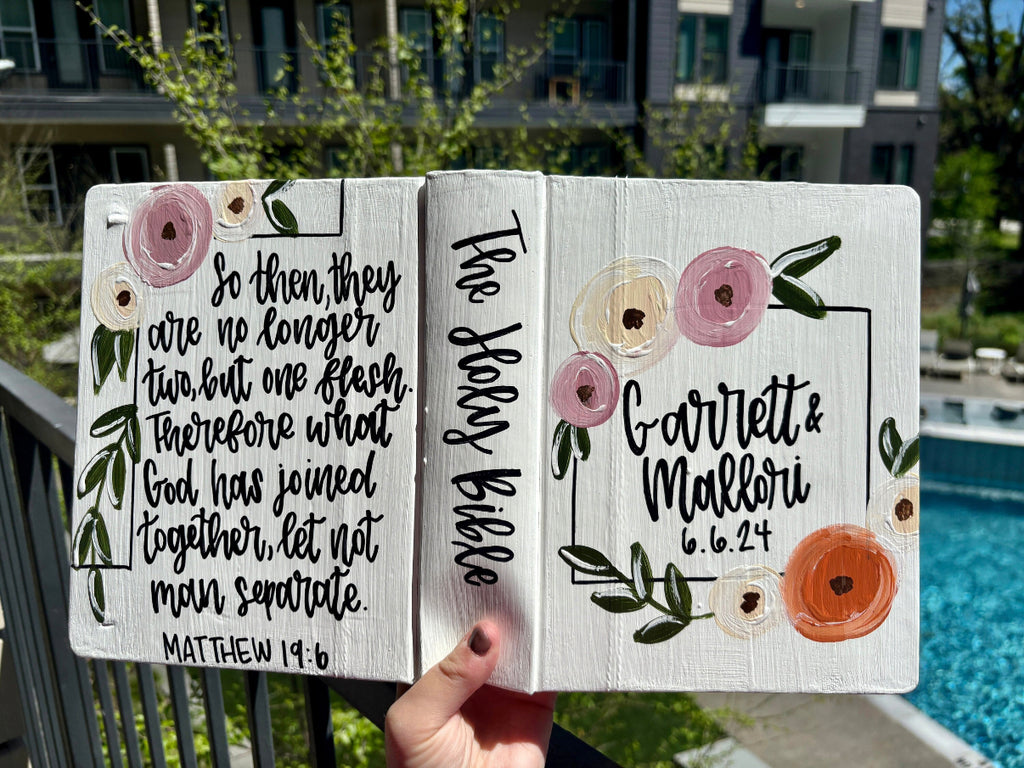 So then, they
are no longer
two, but one flesh.
Therefore what
God has joined
together, let not
man separate.
MATTHEW 19:6
The Holy Bible
Garrett &
Mallori
6.6.24